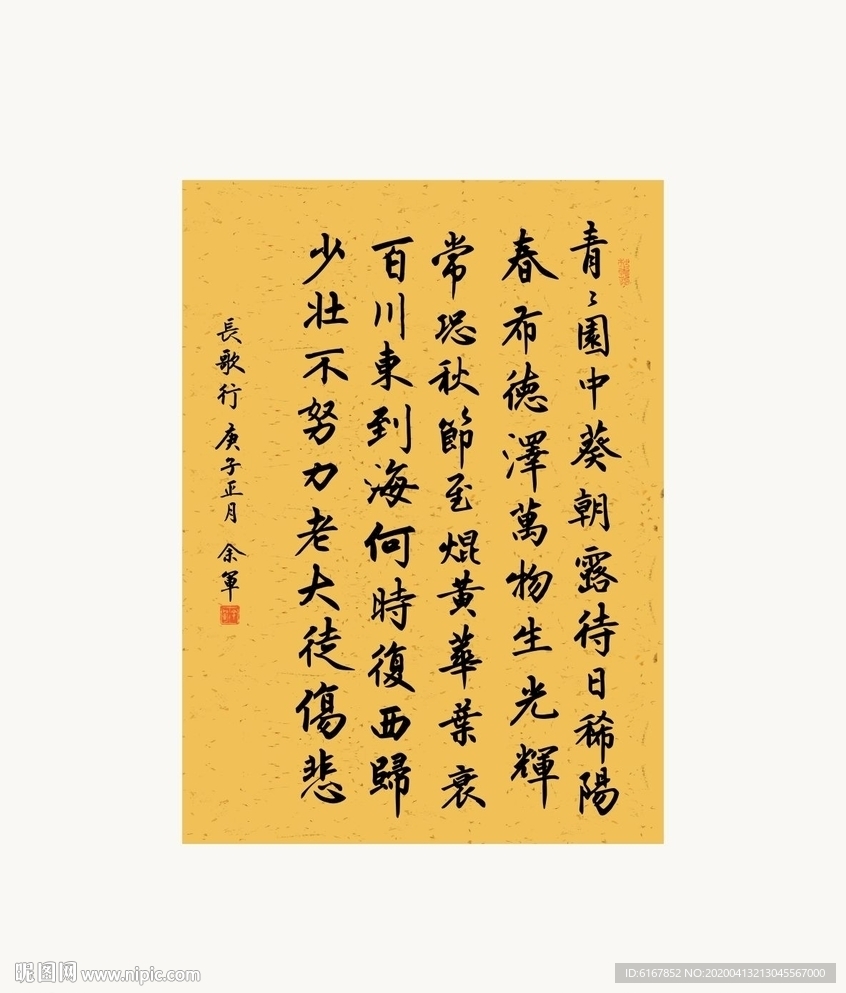 青〻園中葵朝露待日稀陽
春布德澤萬物生光輝
常恐秋節至焜黃華葉衰
百川東到海何時復西歸
少壯不努力老大徒傷悲
長歌行 庚子正月 余軍
昵图网 www.nipic.com
ID:6167852 NO:20200413213045567000